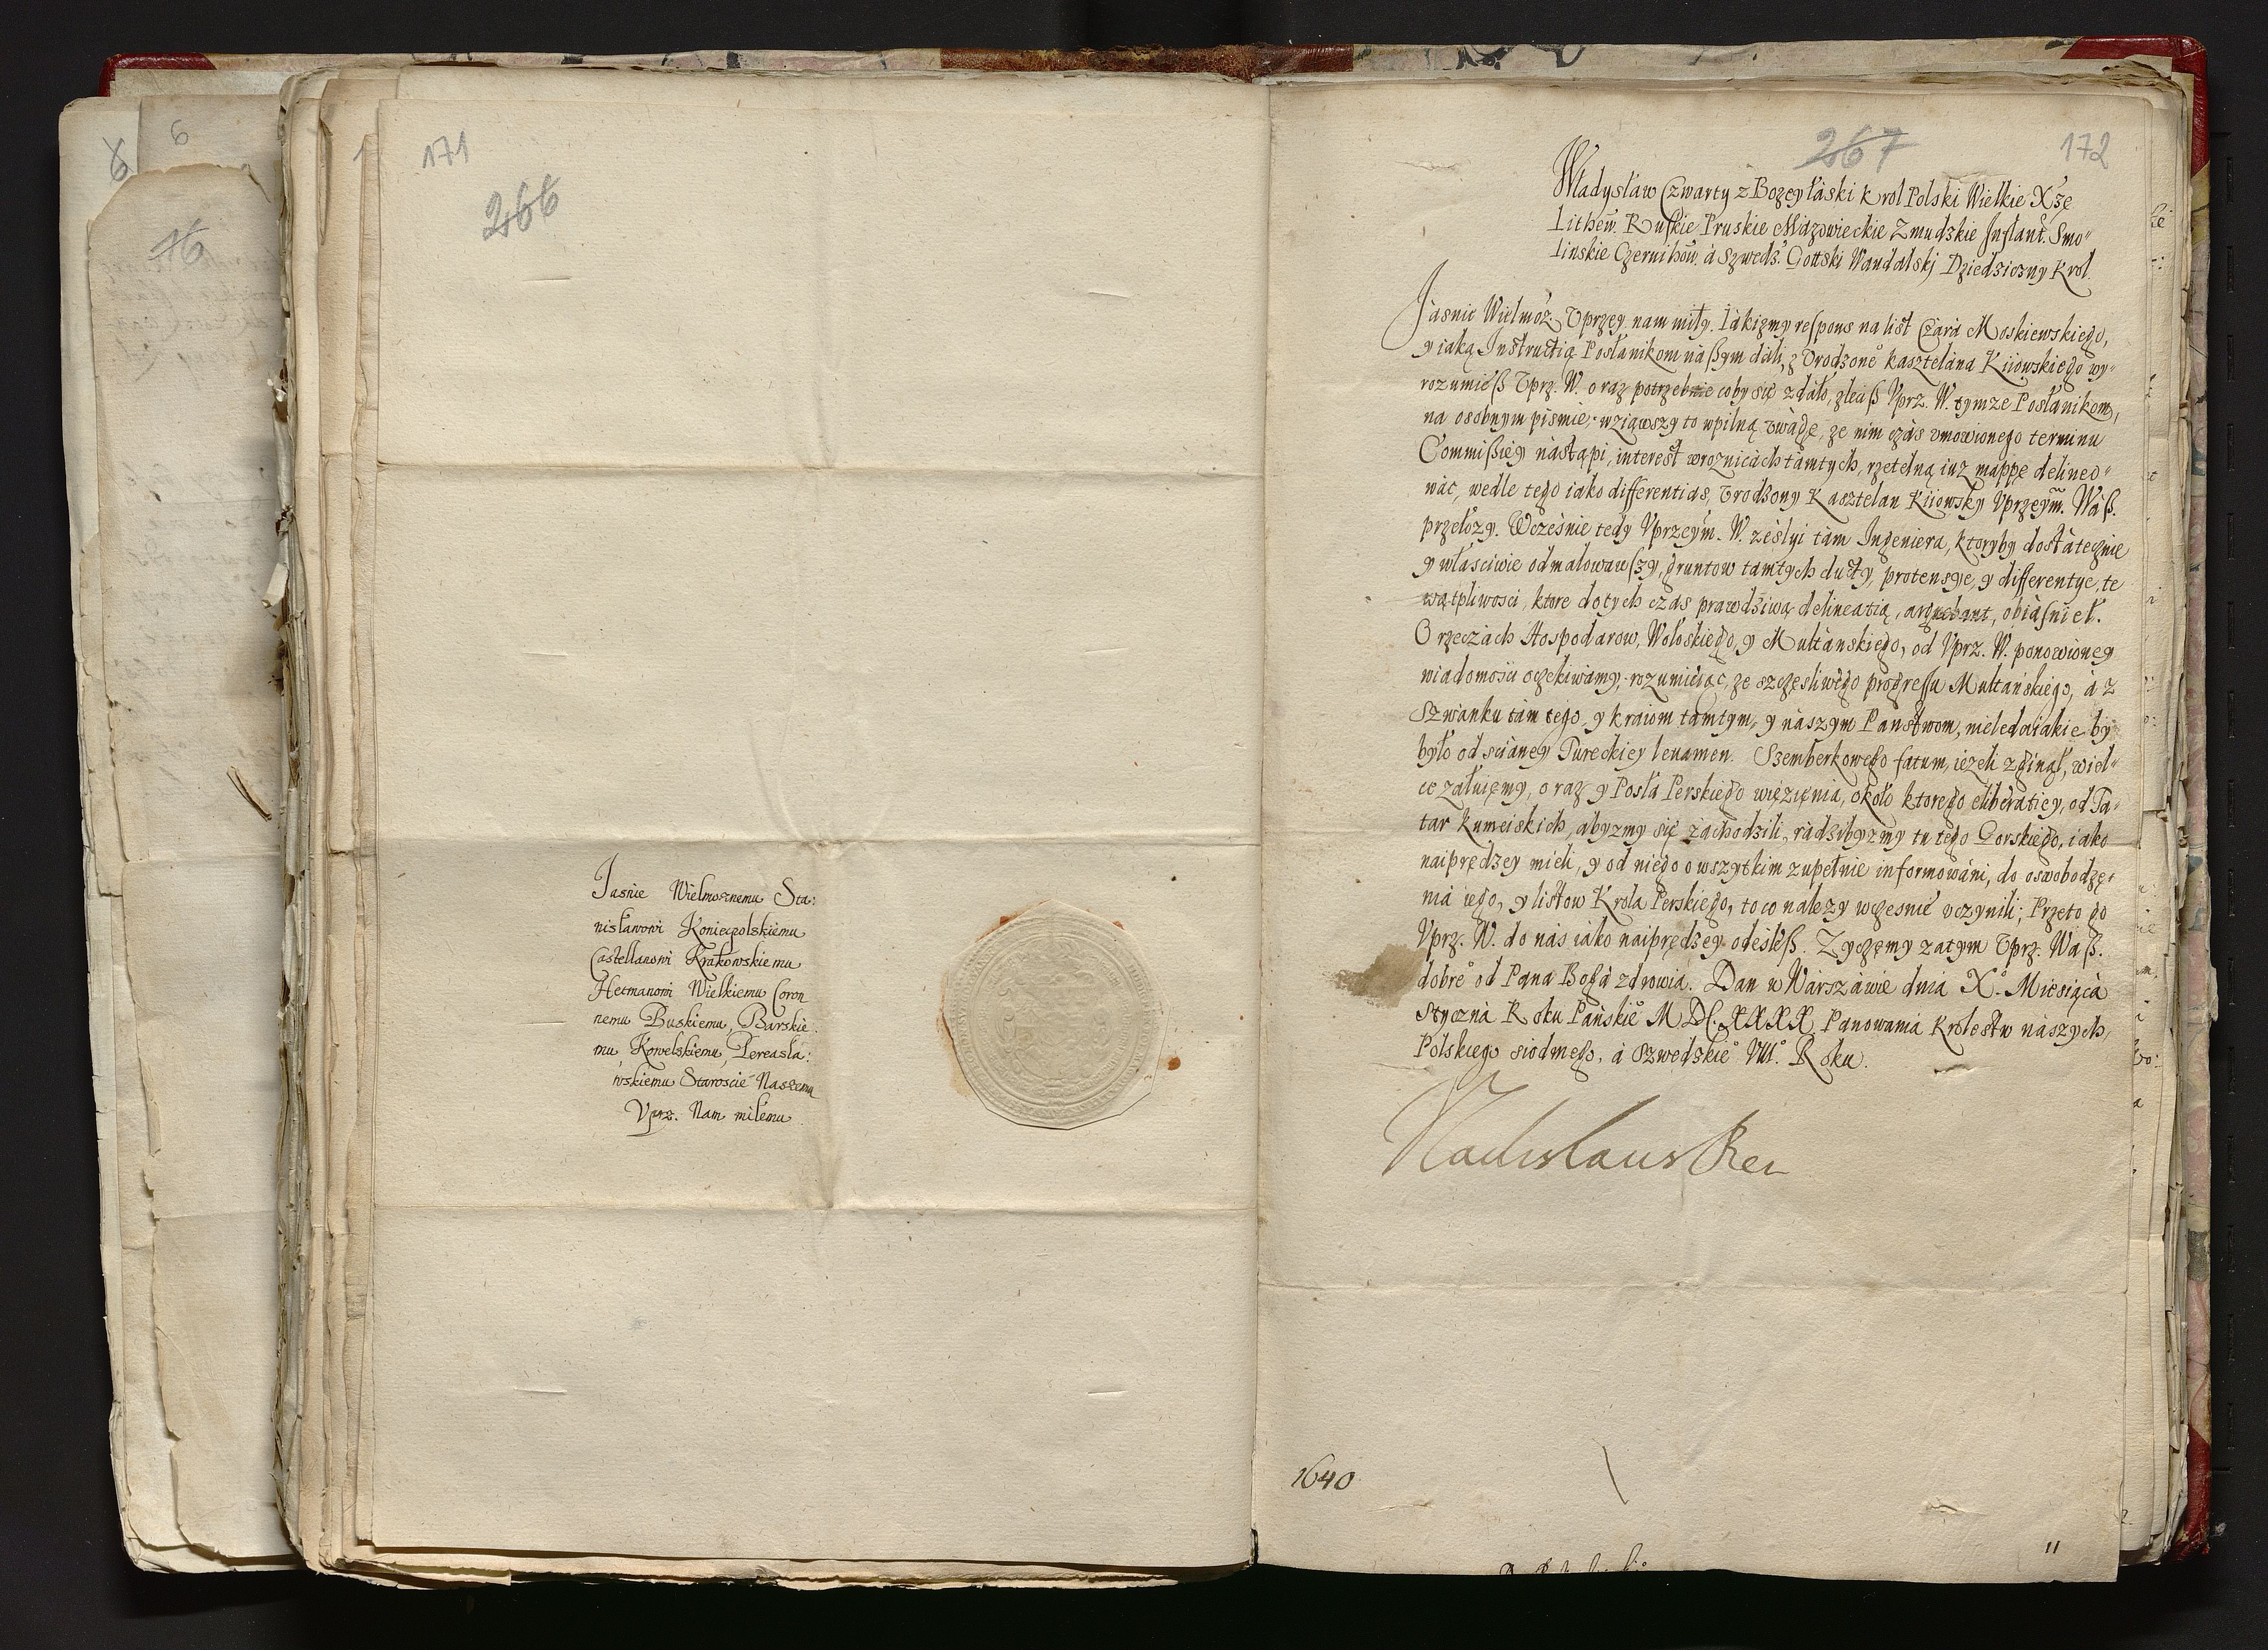 171
266
Jasnie Wielmoznemu Sta:
nisławowi Koniecpolskiemu
Castellanowi Krakowskiemu
Hetmanowi Wielkiemu Coron
nemu Buskiemu, Barskie
mu, Kowelskiemu, Pereasła:
wskiemu Staroscie Naszemu
Vprz. Nam miłemu
267
172
Władysław Czwarty z Bozey łaski Krol Polski Wielkie Xże
Lithew. Ruskie Pruskie Mazowieckie Zmudzkie Inflant. Smo"
linskie Czernihow. à Szwedz. Gottski Wandalskj Dziedziczny Krol.
Jasnie Wielmoz. Vprzey. nam miły. Iàkizmy respons na list Czara Moskiewskiego,
y iaką Instructią Posłanikom nàßym dali, z Vrodzone° kasztelana Kiiowskiego wy"
rozumieß Vprz. W. oraz potrzebnie coby się zdało, zleciß Vprz. W. tymze Posłanikom,
na osobnym pismie, wziąwszy to w pilną vwagę, ze nim czàs vmowionego terminu
Commißiey nàstąpi, interest w roznicàch tàmtych, rzetelną iuz mappę delineo"
wàc, wedle tego iako differentias, Vrodzony Kasztelan Kiiowsky Vprzeym. Wàß.
przełozy. Wczesnie tedy Vprzeym. W. zeslyi tàm Ingeniera, ktoryby dostàtecznie
y własciwie odmalowawszy, gruntow tamtych ducty, protensye, y differentye, te
wątpliwosci, ktore dotych czas prawdziwą delineatią, objàsnieł.
O rzeczàch Hospodarow, Wołoskiego, y Multànskiego, od Vprz. W. ponowioney
wiadomosci oczekiwamy, rozumieiąc, ze szczęsliwego progressu Multańskiego, à z
Szwànku tàm tego, y kraiom tàmtym, y nàszym Panstwom, nieledaiakie by
było od sciàney Tureckiey levamen. Szemberkowego fatum, iezeli zginął, wiel"
ce załuięmy, oraz y Posła Perskiego więzięnia, około ktorego eliberatiey, od Ta"
tar Kumeiskich, abyzmy się zàchodzili, ràdzibyzmy tu tego Gorskiego, iako
naiprędzey mieli, y od niego o wszytkim zupełnie informowàni, do oswobodzę"
nia iego, y listow Krola Perskiego, to co nalezy wczesnie vczynili; Przeto go
Vprz. W. do nàs iako naiprędzey odesleß. Zyczęmy zatym Vprz. Waß.
dobre° od Pana Bogà zdrowia. Dan w Warszàwie dnia X° Miesiącà
Stycznà Roku Pànskie° MDC.XXXX Panowania Krolestw nàszych,
Polskiego siodmego, à Szwedzkie° VIII° Roku.
Vladislaus Rex
1640
11